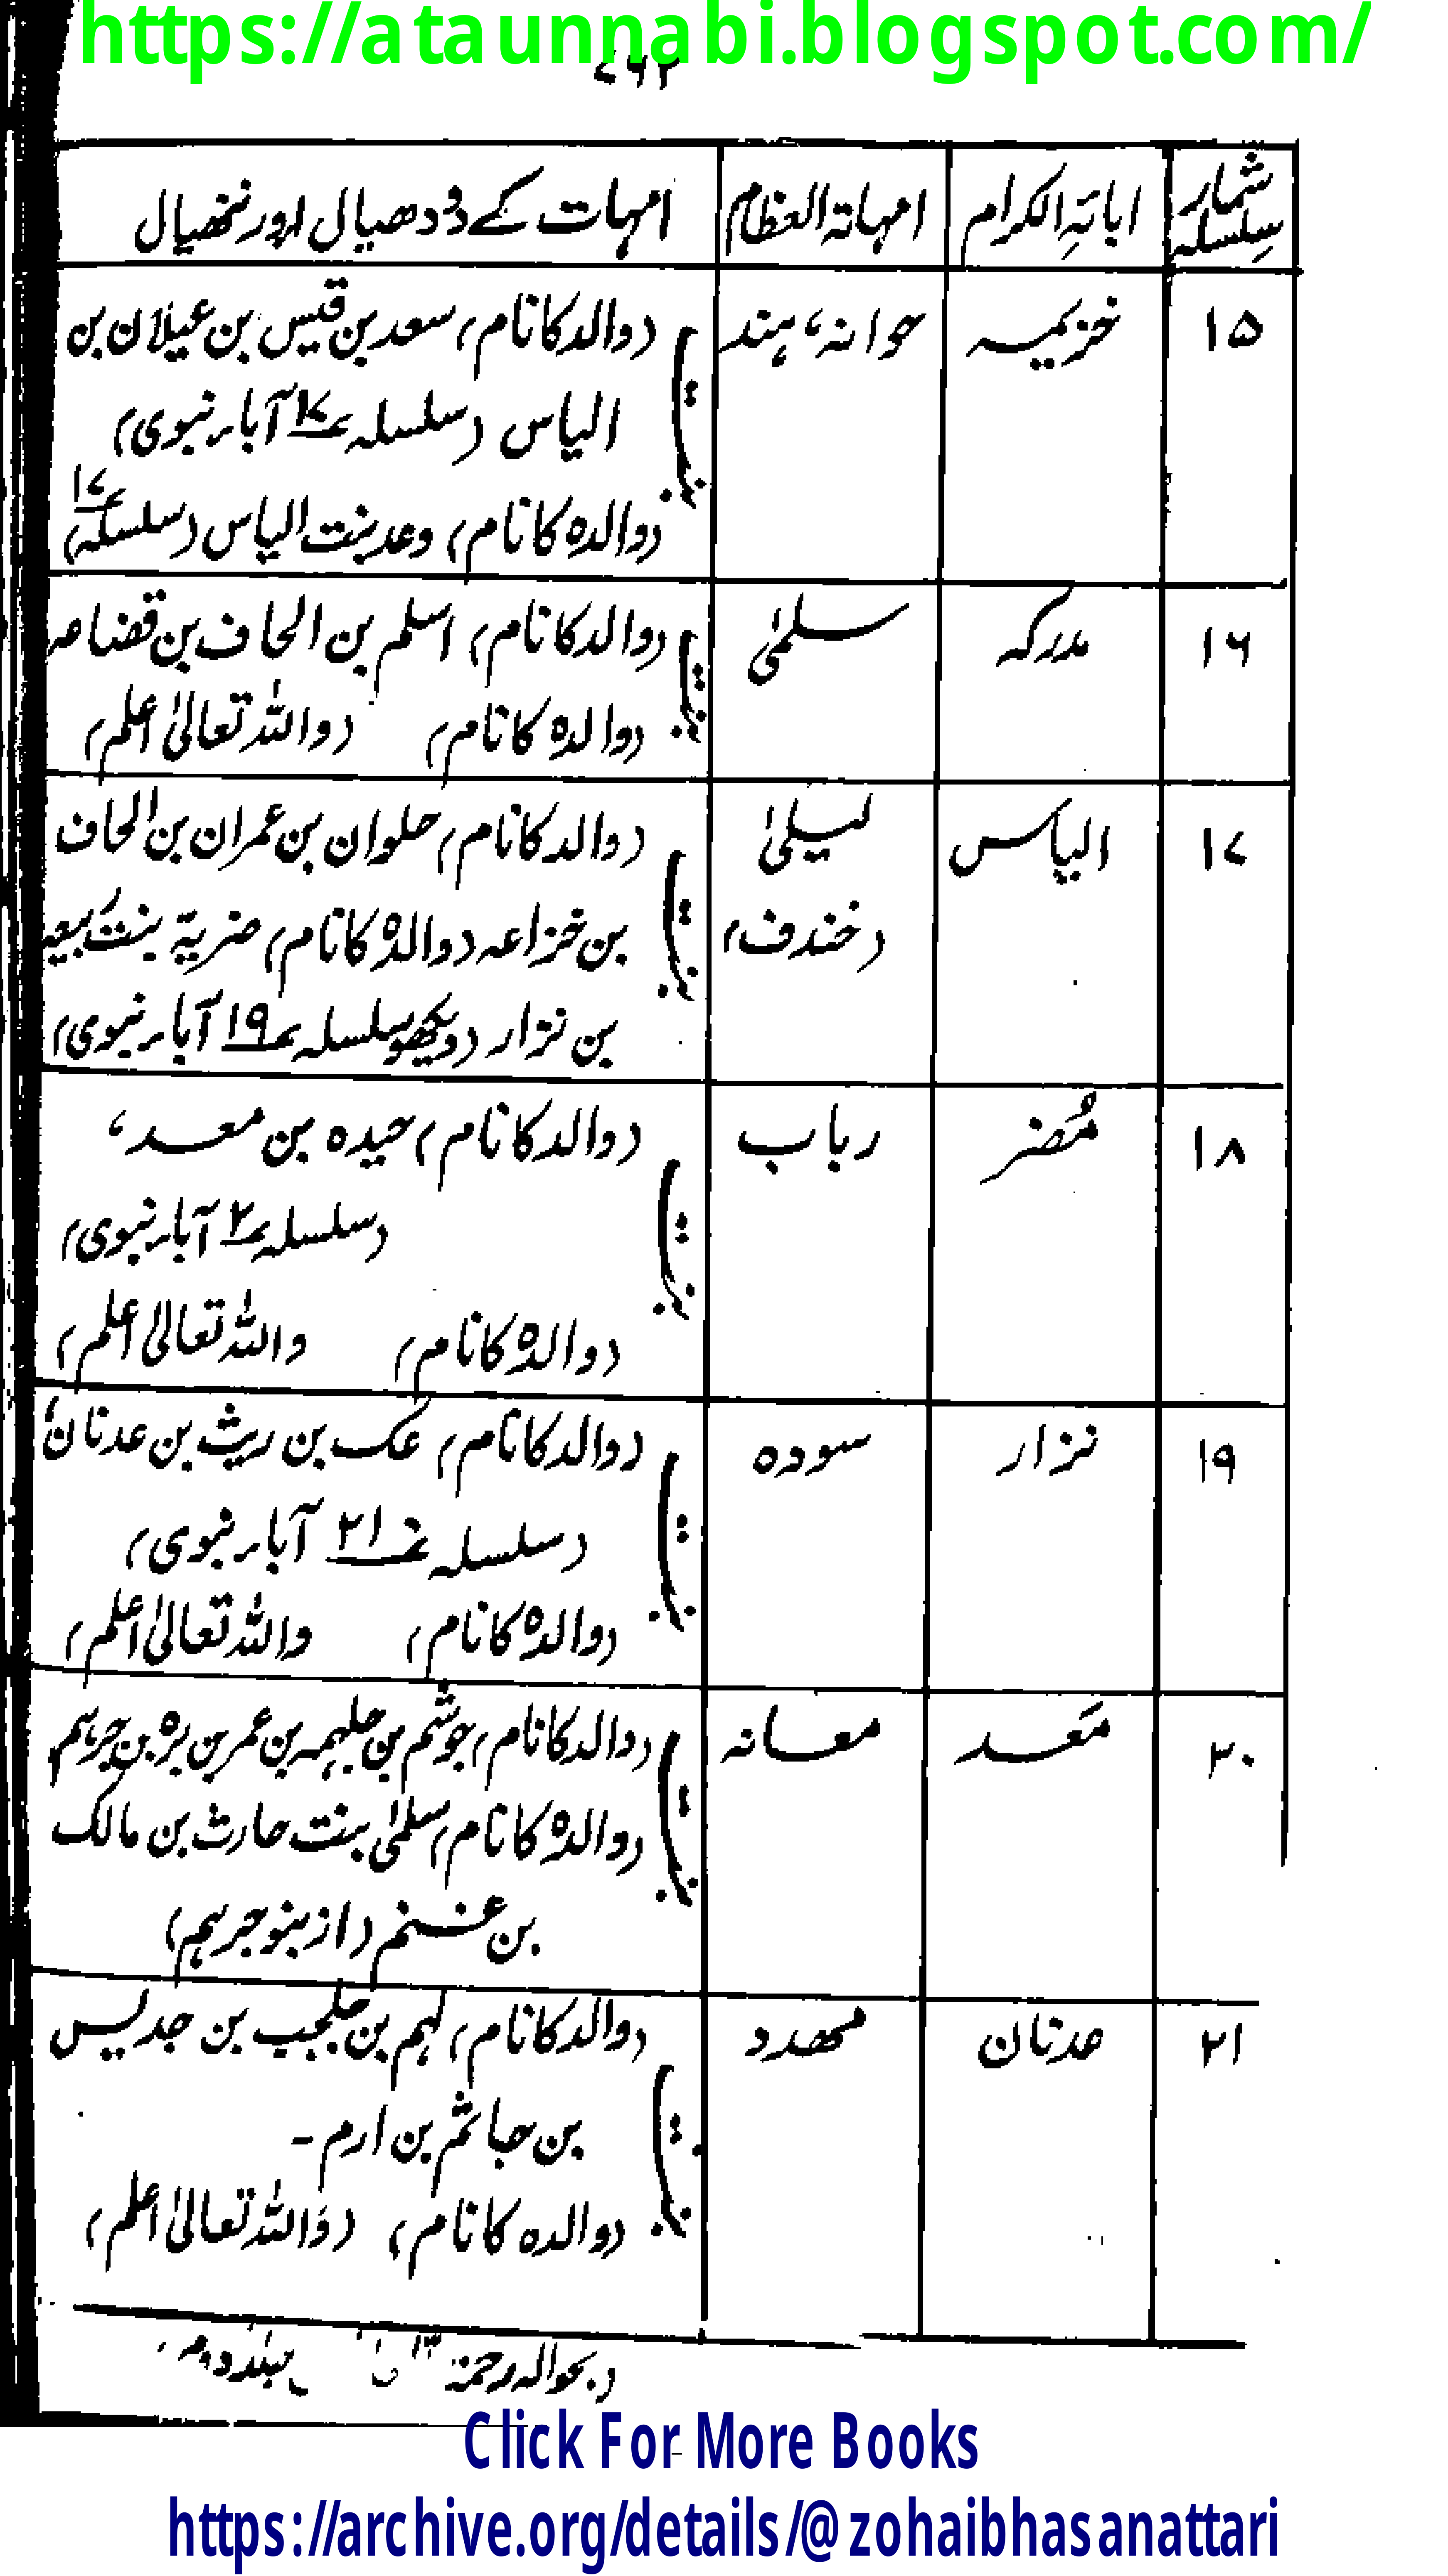 https://ataunnabi.blogspot.com/
۷۶۲
شمار سلسلہ | ابائہِ الکرام | امہاتہ العظام | امہات کے ددھیال اور ننھیال
۱۵ | خزیمیہ | حوانہ، ہند | (والد کا نام) سعد بن قیس بن عیلان بن
الیاس (سلسلہ ؏۱۷ آباء نبوی)
(والدہ کا نام) وعد بنت الیاس (سلسلہ ؏۱۷)
۱۶ | مدرکہ | سلمٰی | (والد کا نام) اسلم بن الحاف بن قضاعہ
(والدہ کا نام) (واللہ تعالیٰ اعلم)
۱۷ | الیاس | لیلیٰ | (والد کا نام) حلوان بن عمران بن الحاف
(خندف) | بن خزاعہ (والدہ کا نام) ضریۃ بنت ربیعہ
بن نزار (دیکھو سلسلہ ؏۱۹ آباء نبوی)
۱۸ | مُضر | رباب | (والد کا نام) حیدہ بن معد،
(سلسلہ ؏۲ آباء نبوی)
(والدہ کا نام) واللہ تعالیٰ اعلم)
۱۹ | نزار | سودہ | (والد کا نام) عک بن ریث بن عدنان
(سلسلہ ؏۲۱ آباء نبوی)
(والدہ کا نام) واللہ تعالیٰ اعلم)
۲۰ | مَعد | معانہ | (والد کا نام) جوشم بن جلہمہ بن عمر بن برہ بن جرہم
(والدہ کا نام) سلمٰی بنت حارث بن مالک
بن غنم (از بنو جرہم)
۲۱ | عدنان | مھدد | (والد کا نام) لہم بن جلجب بن جدیس
بن جاثم بن ارم ـ
(والدہ کا نام) (واللہ تعالیٰ اعلم)
(بحوالہ رحمۃ
Click For More Books
https://archive.org/details/@zohaibhasanattari